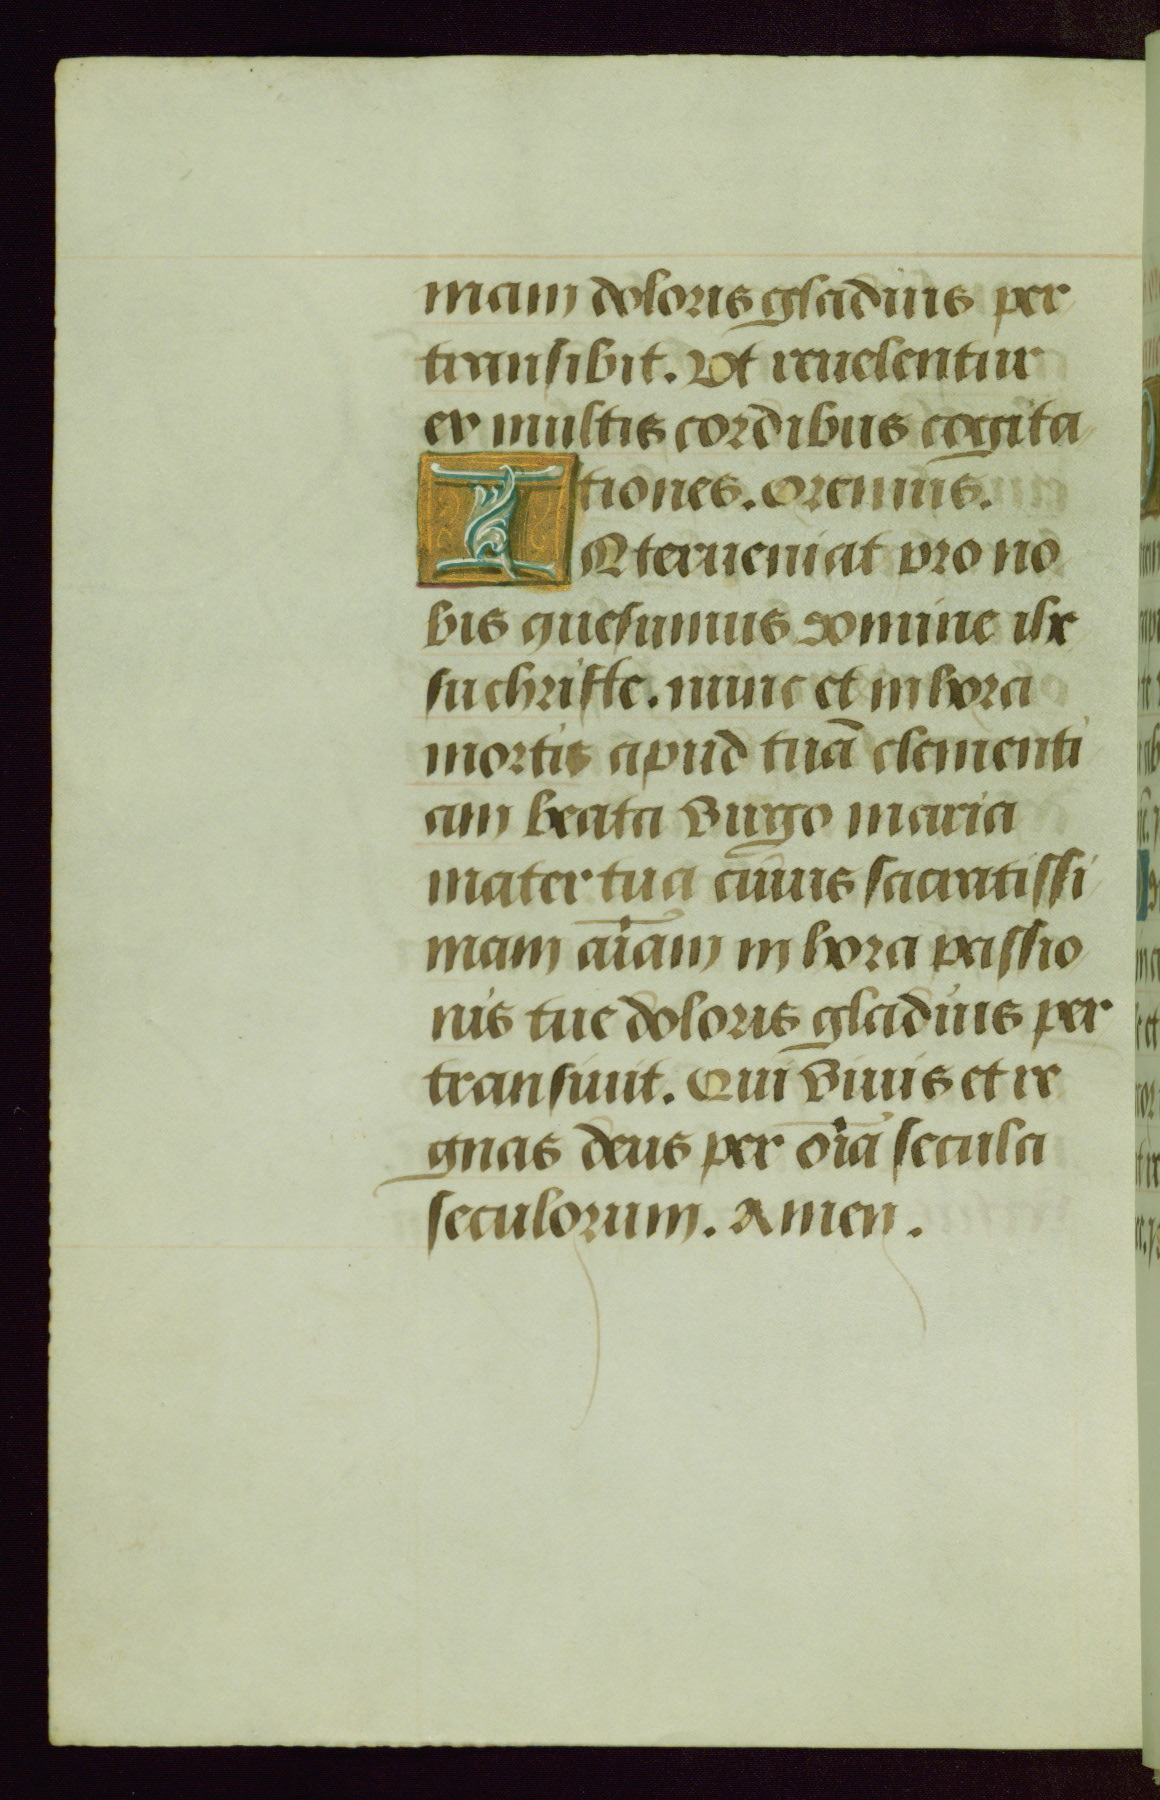 mam doloris gladius per
transibit. Vt reuelentur
ex multis cordibus cogita
tiones. Oremus.
INterueniat pro no
bis quesumus domine ihe
su christe. nunc et in hora
mortis apud tuā clementi
am beata virgo maria
mater tua cuius sacratissi
mam aīam in hora passio
nis tue doloris gladius per
transiuit. Qui viuis et re
gnas deus per oīa secula
seculorum. Amen.